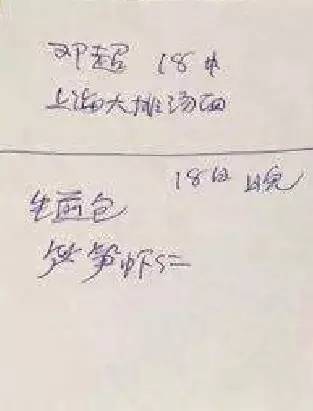 邓超 18中
上海大排汤面
18日 晚
生煎包
笋虾仁